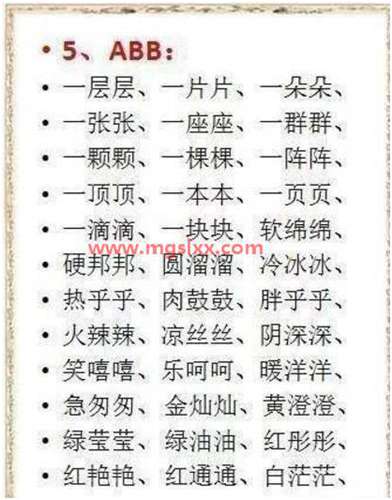 • 5、ABB：
• 一层层、一片片、一朵朵、
• 一张张、一座座、一群群、
• 一颗颗、一棵棵、一阵阵、
• 一顶顶、一本本、一页页、
• 一滴滴、一块块、软绵绵、
www.mgslxx.com
• 硬邦邦、圆溜溜、冷冰冰、
• 热乎乎、肉鼓鼓、胖乎乎、
• 火辣辣、凉丝丝、阴深深、
• 笑嘻嘻、乐呵呵、暖洋洋、
• 急匆匆、金灿灿、黄澄澄、
• 绿莹莹、绿油油、红彤彤、
• 红艳艳、红通通、白茫茫、